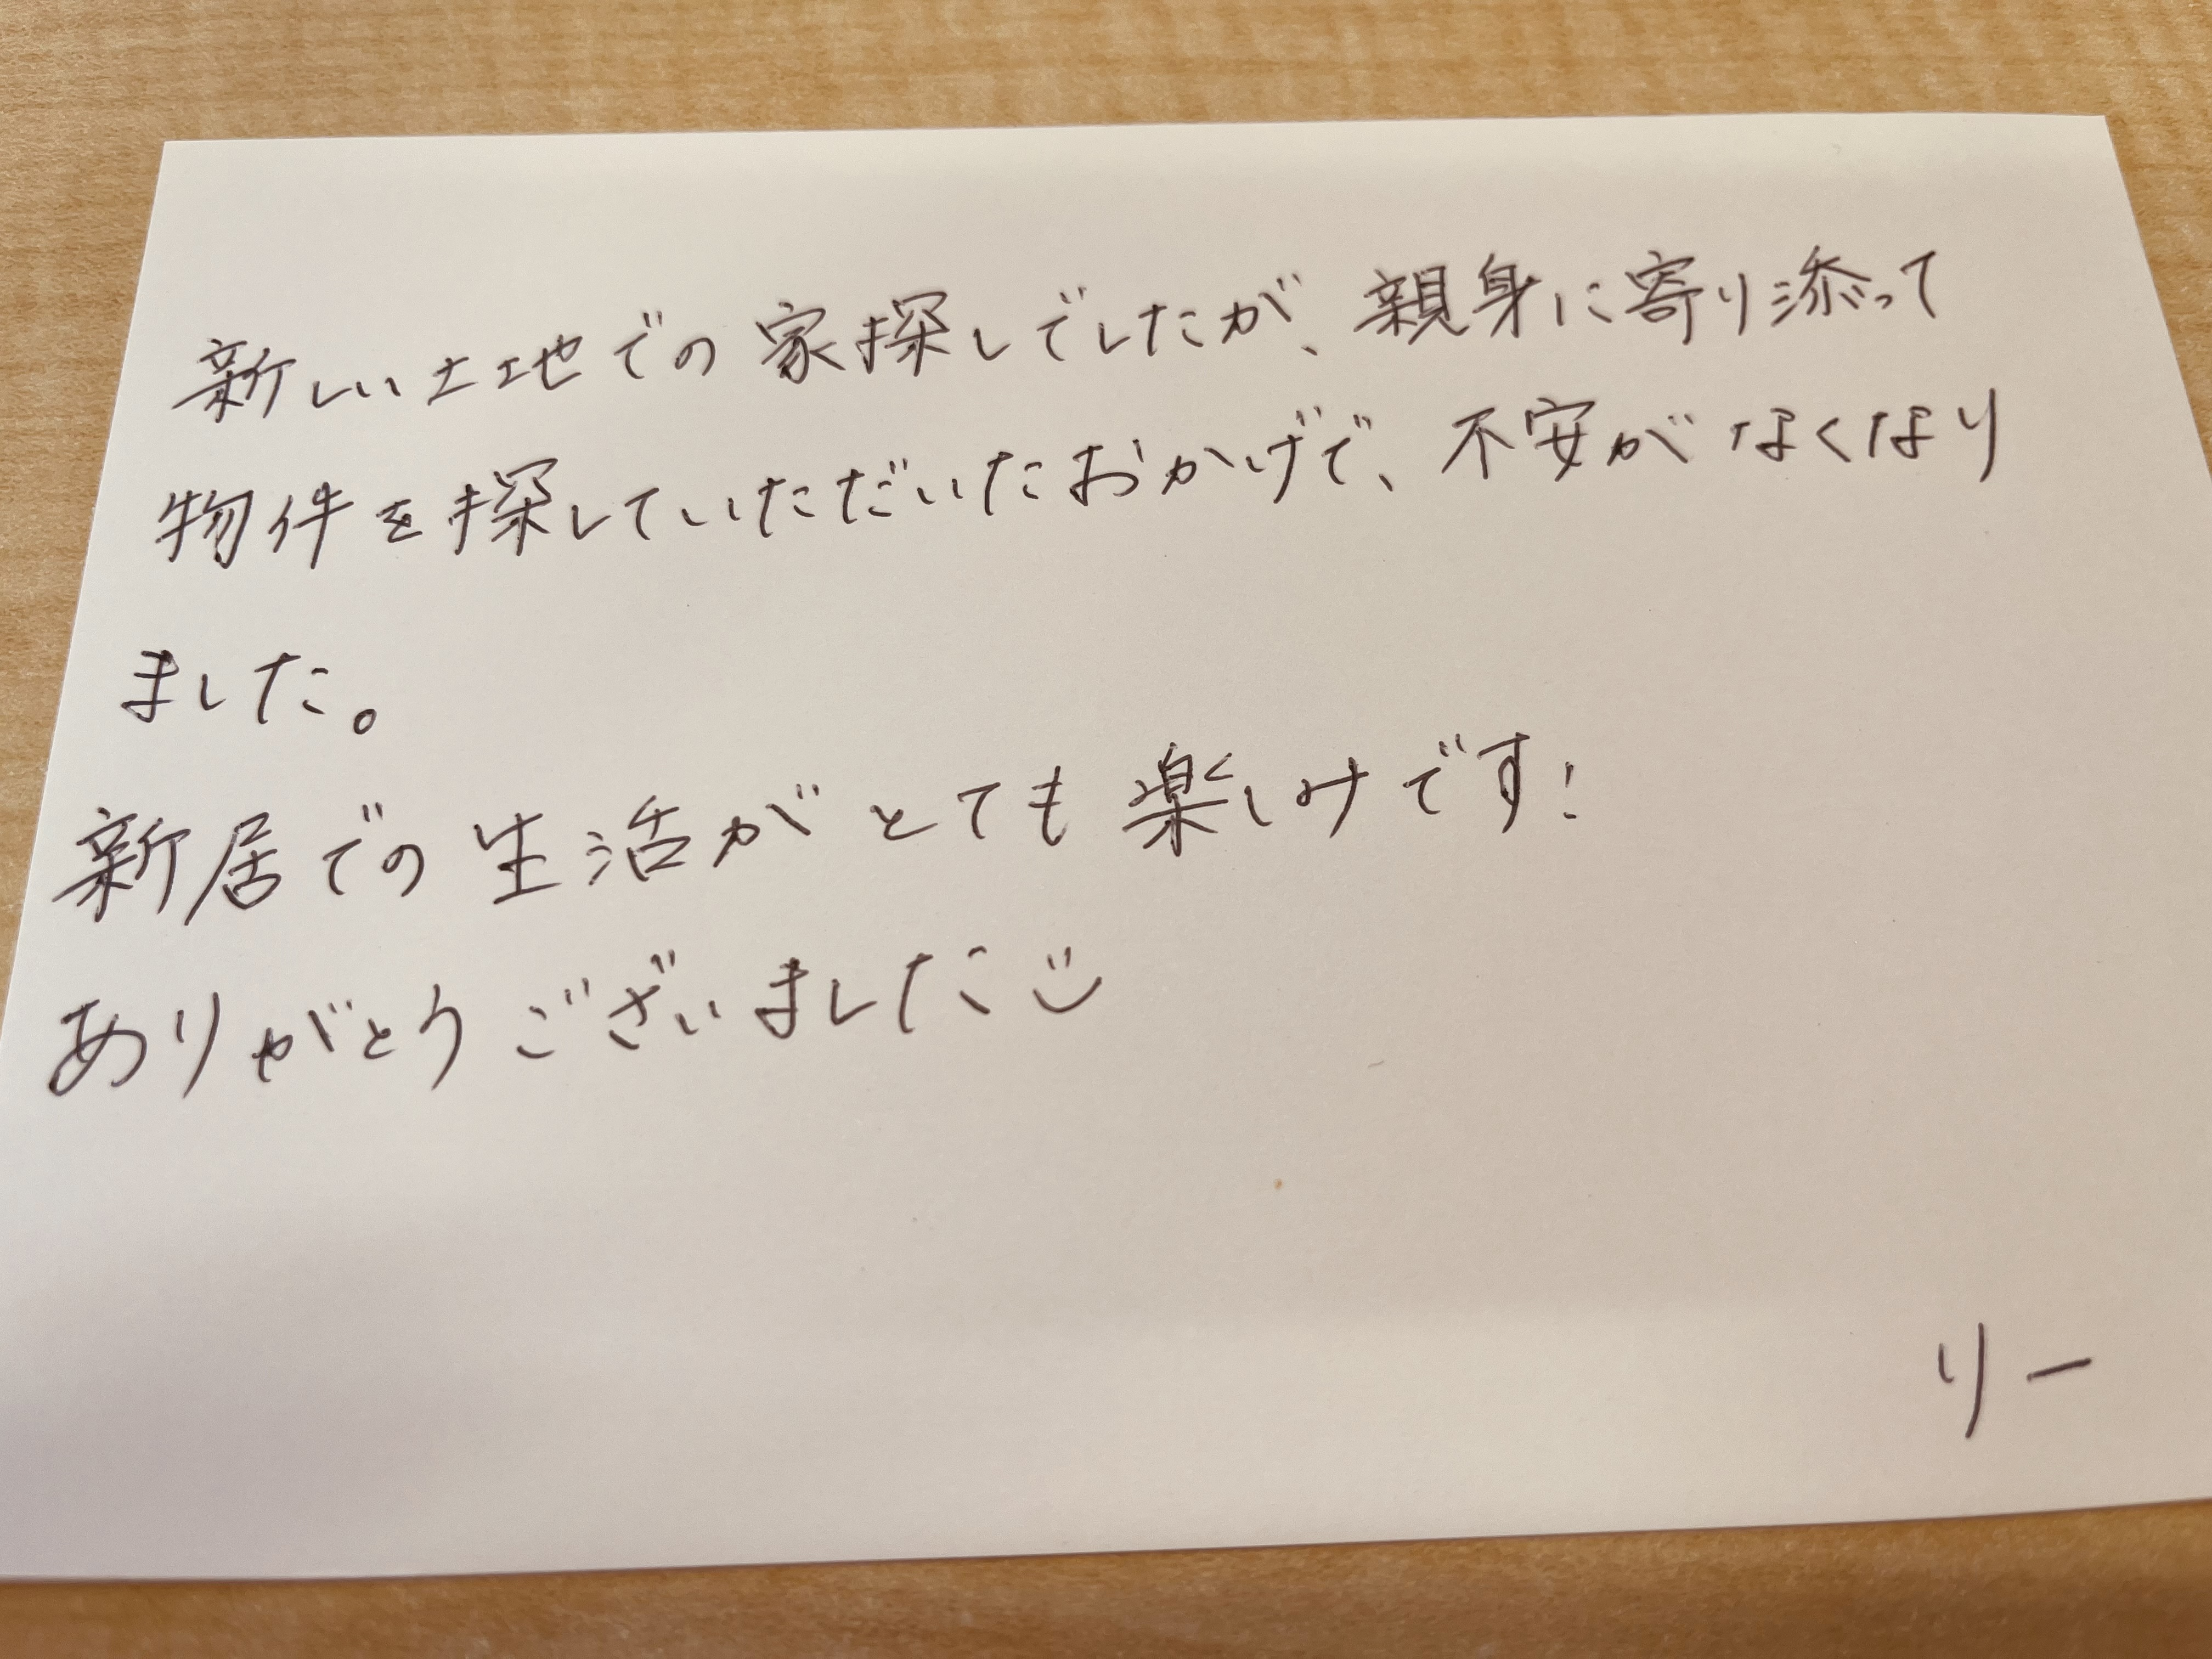 新しい土地での家探しでしたが、親身に寄り添って
物件を探していただいたおかげで、不安がなくなり
ました。
新居での生活がとても楽しみです!
ありがとうございました
リー